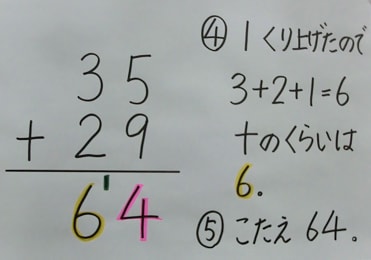 35
+ 29
1
64
④ 1くり上げたので
3+2+1=6
十のくらいは
6。
⑤ こたえ 64。